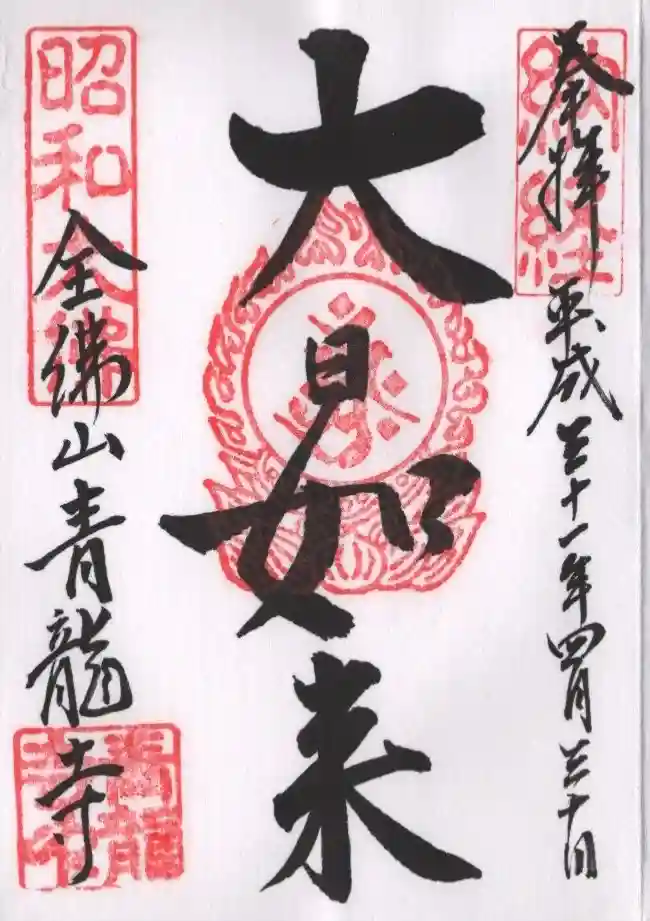 奉拝
平成三十一年四月三十日
納経社
大日如来
昭和大佛
全佛山青龍寺